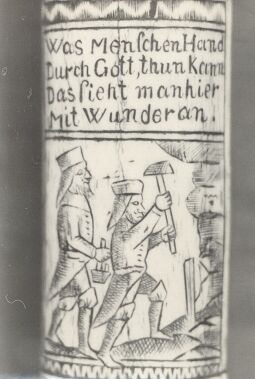 Was Menſchen Hand
Durch Gott, thun Kann
Das ſieht man hier
Mit Wunder an.